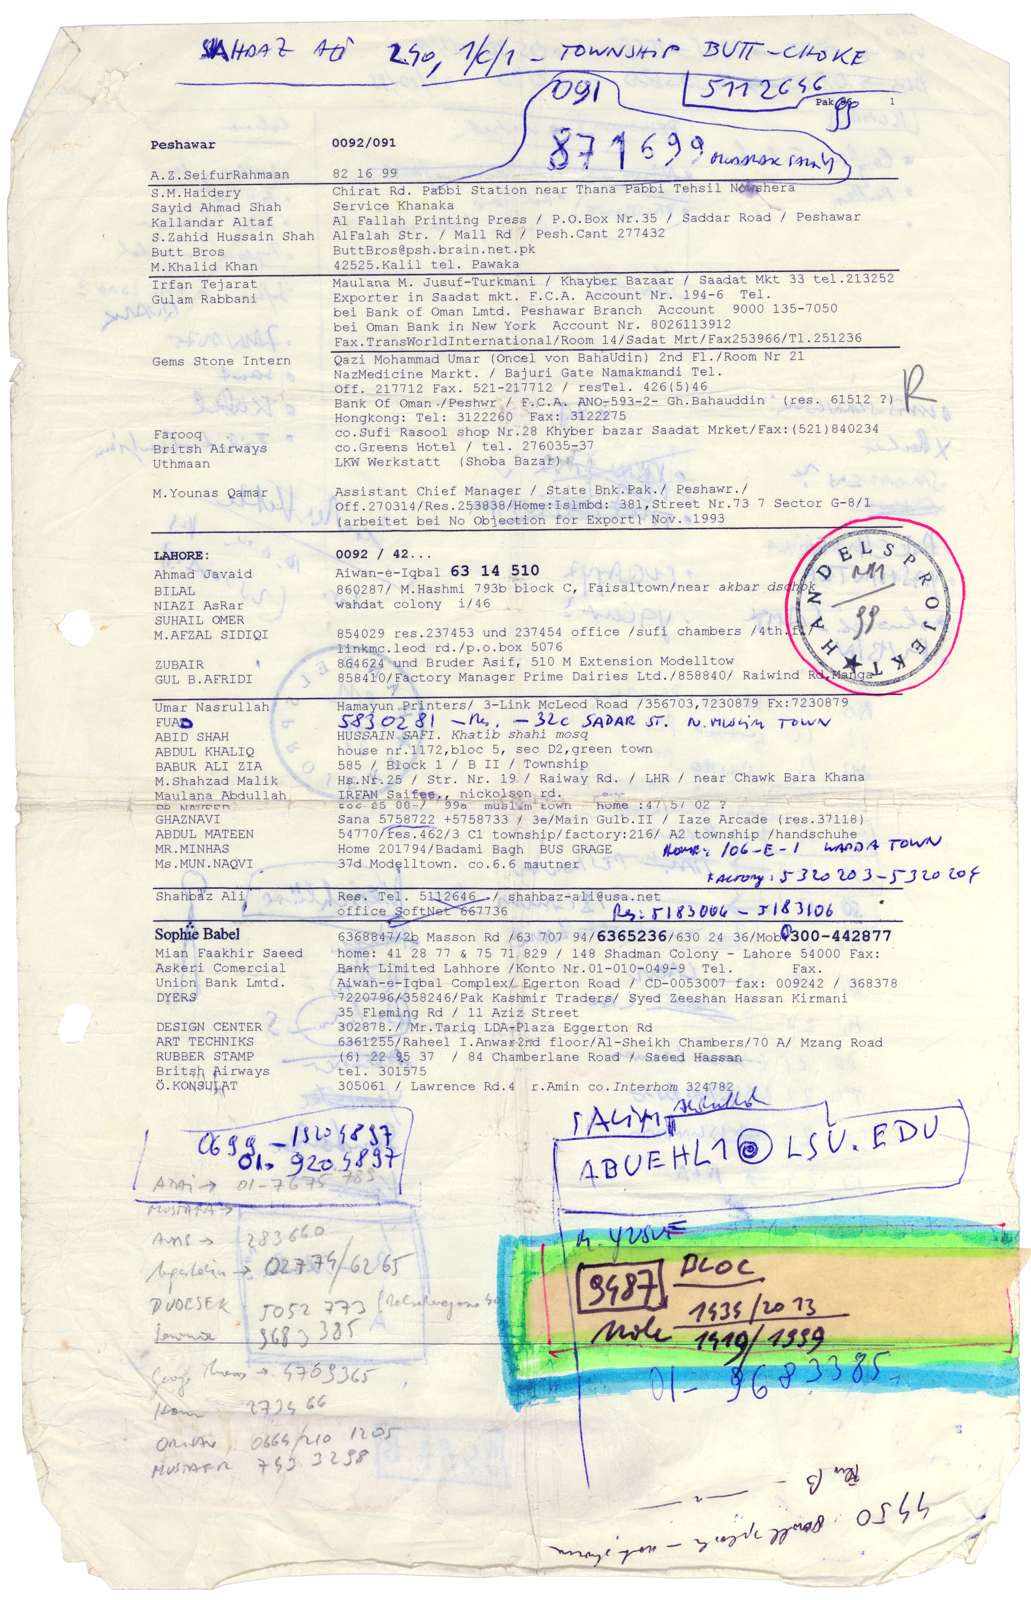 SAHBAZ Ali 240, 1/C/1 - TOWNSHIP BUTT-CHOKE
091
5112646
Pak 1
99
871699
Peshawar 0092/091
A.Z.SeifurRahmaan 82 16 99
S.M.Haidery Chirat Rd. Pabbi Station near Thana Pabbi Tehsil Nowshera
Sayid Ahmad Shah Service Khanaka
Kallandar Altaf Al Fallah Printing Press / P.O.Box Nr.35 / Saddar Road / Peshawar
S.Zahid Hussain Shah AlFalah Str. / Mall Rd / Pesh.Cant 277432
Butt Bros ButtBros@psh.brain.net.pk
M.Khalid Khan 42525.Kalil tel. Pawaka
Irfan Tejarat Maulana M. Jusuf-Turkmani / Khayber Bazaar / Saadat Mkt 33 tel.213252
Gulam Rabbani Exporter in Saadat mkt. F.C.A. Account Nr. 194-6 Tel.
bei Bank of Oman Lmtd. Peshawar Branch Account 9000 135-7050
bei Oman Bank in New York Account Nr. 8026113912
Fax.TransWorldInternational/Room 14/Sadat Mrt/Fax253966/Tl.251236
Gems Stone Intern Qazi Mohammad Umar (Oncel von BahaUdin) 2nd Fl./Room Nr 21
NazMedicine Markt. / Bajuri Gate Namakmandi Tel.
Off. 217712 Fax. 521-217712 / resTel. 426(5)46
Bank Of Oman./Peshwr / F.C.A. ANO-593-2- Gh.Bahauddin (res. 61512 ?) R
Hongkong: Tel: 3122260 Fax: 3122275
Farooq co.Sufi Rasool shop Nr.28 Khyber bazar Saadat Mrket/Fax:(521)840234
Britsh Airways co.Greens Hotel / tel. 276035-37
Uthmaan LKW Werkstatt (Shoba Bazar)
M.Younas Qamar Assistant Chief Manager / State Bnk.Pak./ Peshawr./
Off.270314/Res.253838/Home:Islmbd: 381,Street Nr.73 7 Sector G-8/1
(arbeitet bei No Objection for Export) Nov. 1993
HANDELSPROJEKT
99
LAHORE: 0092 / 42...
Ahmad Javaid Aiwan-e-Iqbal 63 14 510
BILAL 860287/ M.Hashmi 793b block C, Faisaltown/near akbar dschok
NIAZI AsRar wahdat colony i/46
SUHAIL OMER
M.AFZAL SIDIQI 854029 res.237453 und 237454 office /sufi chambers /4th.f.
linkmc.leod rd./p.o.box 5076
ZUBAIR 864624 und Bruder Asif, 510 M Extension Modelltow
GUL B.AFRIDI 858410/Factory Manager Prime Dairies Ltd./858840/ Raiwind Rd,Manga
Umar Nasrullah Hamayun Printers/ 3-Link McLeod Road /356703,7230879 Fx:7230879
FUAD 5830281 - Res. - 32C SADAR ST. N. MUSLIM TOWN
ABID SHAH HUSSAIN SAFI. Khatib shahi mosq
ABDUL KHALIQ house nr.1172,bloc 5, sec D2,green town
BABUR ALI ZIA 585 / Block 1 / B II / Township
M.Shahzad Malik Hs.Nr.25 / Str. Nr. 19 / Raiway Rd. / LHR / near Chawk Bara Khana
Maulana Abdullah IRFAN Saifee., nickolson rd.
99a muslim town home :47/5/ 02 ?
GHAZNAVI Sana 5758722 +5758733 / 3e/Main Gulb.II / Iaze Arcade (res.37118)
ABDUL MATEEN 54770/res.462/3 C1 township/factory:216/ A2 township /handschuhe
MR.MINHAS Home 201794/Badami Bagh BUS GRAGE Home: 106-E-1 WAPDA TOWN
Ms.MUN.NAQVI 37d Modelltown. co.6.6 mautner
FACTORY: 5320203-5320204
Shahbaz Ali Res. Tel. 5112646 / shahbaz-ali@usa.net
office SoftNet 667736 Res: 5183006 - 5183106
Sophie Babel 6368847/2b Masson Rd /63 707 94/6365236/630 24 36/Mob 0300-442877
Mian Faakhir Saeed home: 41 28 77 & 75 71 829 / 148 Shadman Colony - Lahore 54000 Fax:
Askeri Comercial Bank Limited Lahhore /Konto Nr.01-010-049-9 Tel. Fax.
Union Bank Lmtd. Aiwan-e-Iqbal Complex/ Egerton Road / CD-0053007 fax: 009242 / 368378
DYERS 7220796/358246/Pak Kashmir Traders/ Syed Zeeshan Hassan Kirmani
35 Fleming Rd / 11 Aziz Street
DESIGN CENTER 302878./ Mr.Tariq LDA-Plaza Eggerton Rd
ART TECHNIKS 6361255/Raheel I.Anwar2nd floor/Al-Sheikh Chambers/70 A/ Mzang Road
RUBBER STAMP (6) 22 95 37 / 84 Chamberlane Road / Saeed Hassan
Britsh Airways tel. 301575
Ö.KONSULAT 305061 / Lawrence Rd.4 r.Amin co.Interhom 324782
SALIM
0699 - 19204897
01- 9204897
ABUEHL1@LSU.EDU
01-7675 783
MUSTAFA →
283660
02774/6265
5052 773
9683 385
9487 BLOC
1434/2013
1419/1999
01- 9683385
→ 4769365
273466
0664/210 1205
793 3298
4450